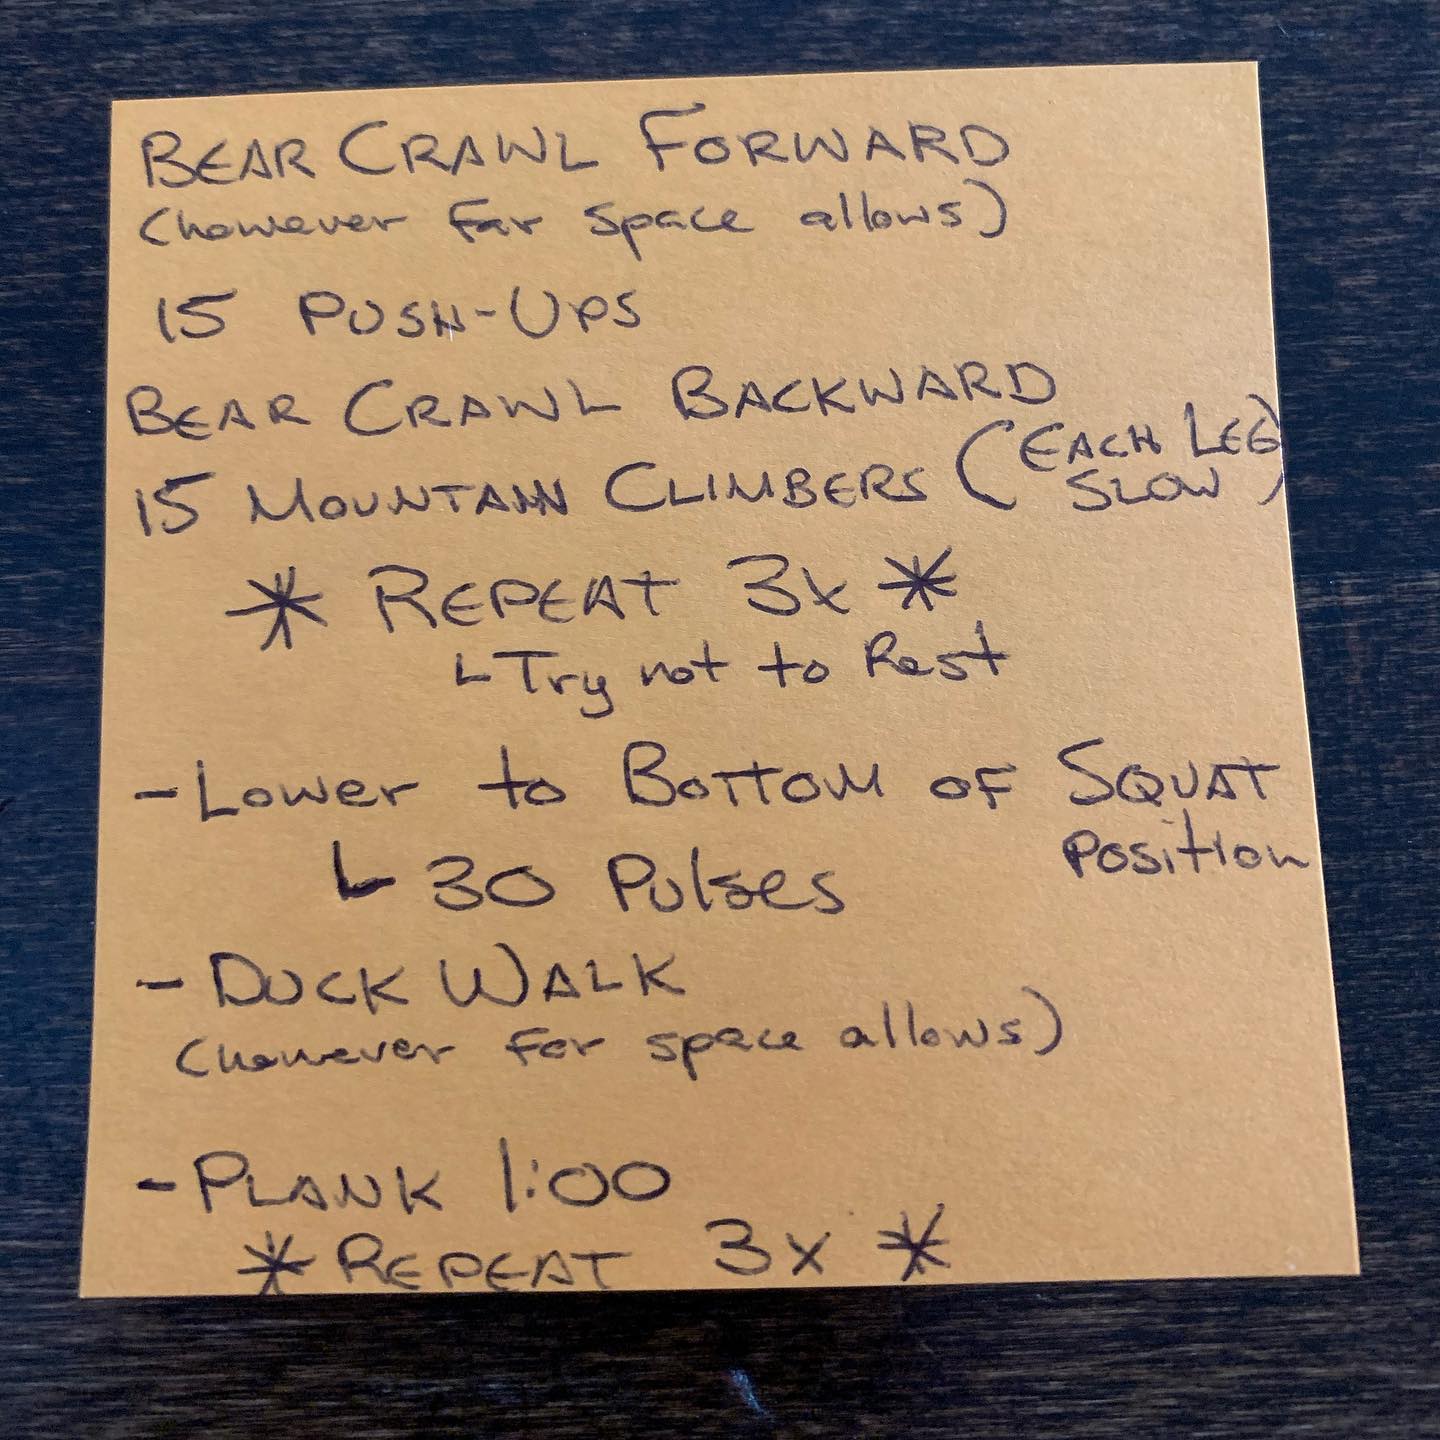 BEAR CRAWL FORWARD
(however far space allows)
15 PUSH-UPS
BEAR CRAWL BACKWARD
15 MOUNTAIN CLIMBERS (EACH LEG
SLOW)
* REPEAT 3x *
Try not to Rest
- Lower to BOTTOM OF SQUAT
Position
30 Pulses
- DUCK WALK
(however far space allows)
- PLANK 1:00
* REPEAT 3x *